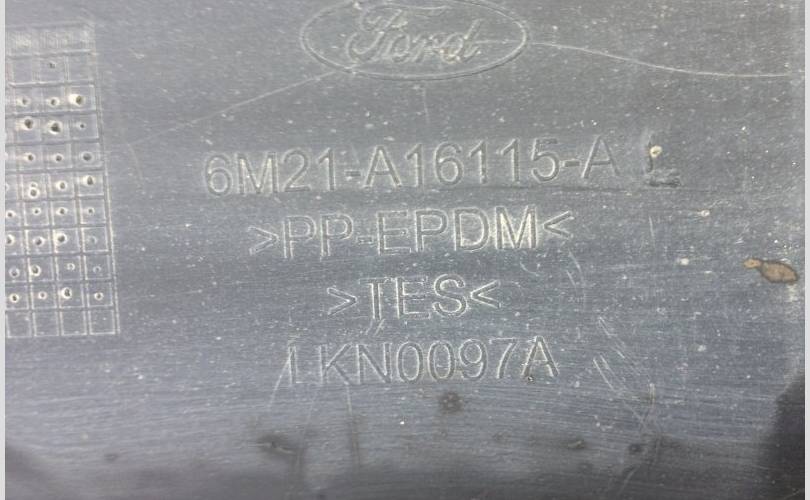 Ford
6M21-A16115-A
>PP-EPDM<
>TES<
LKN0097A